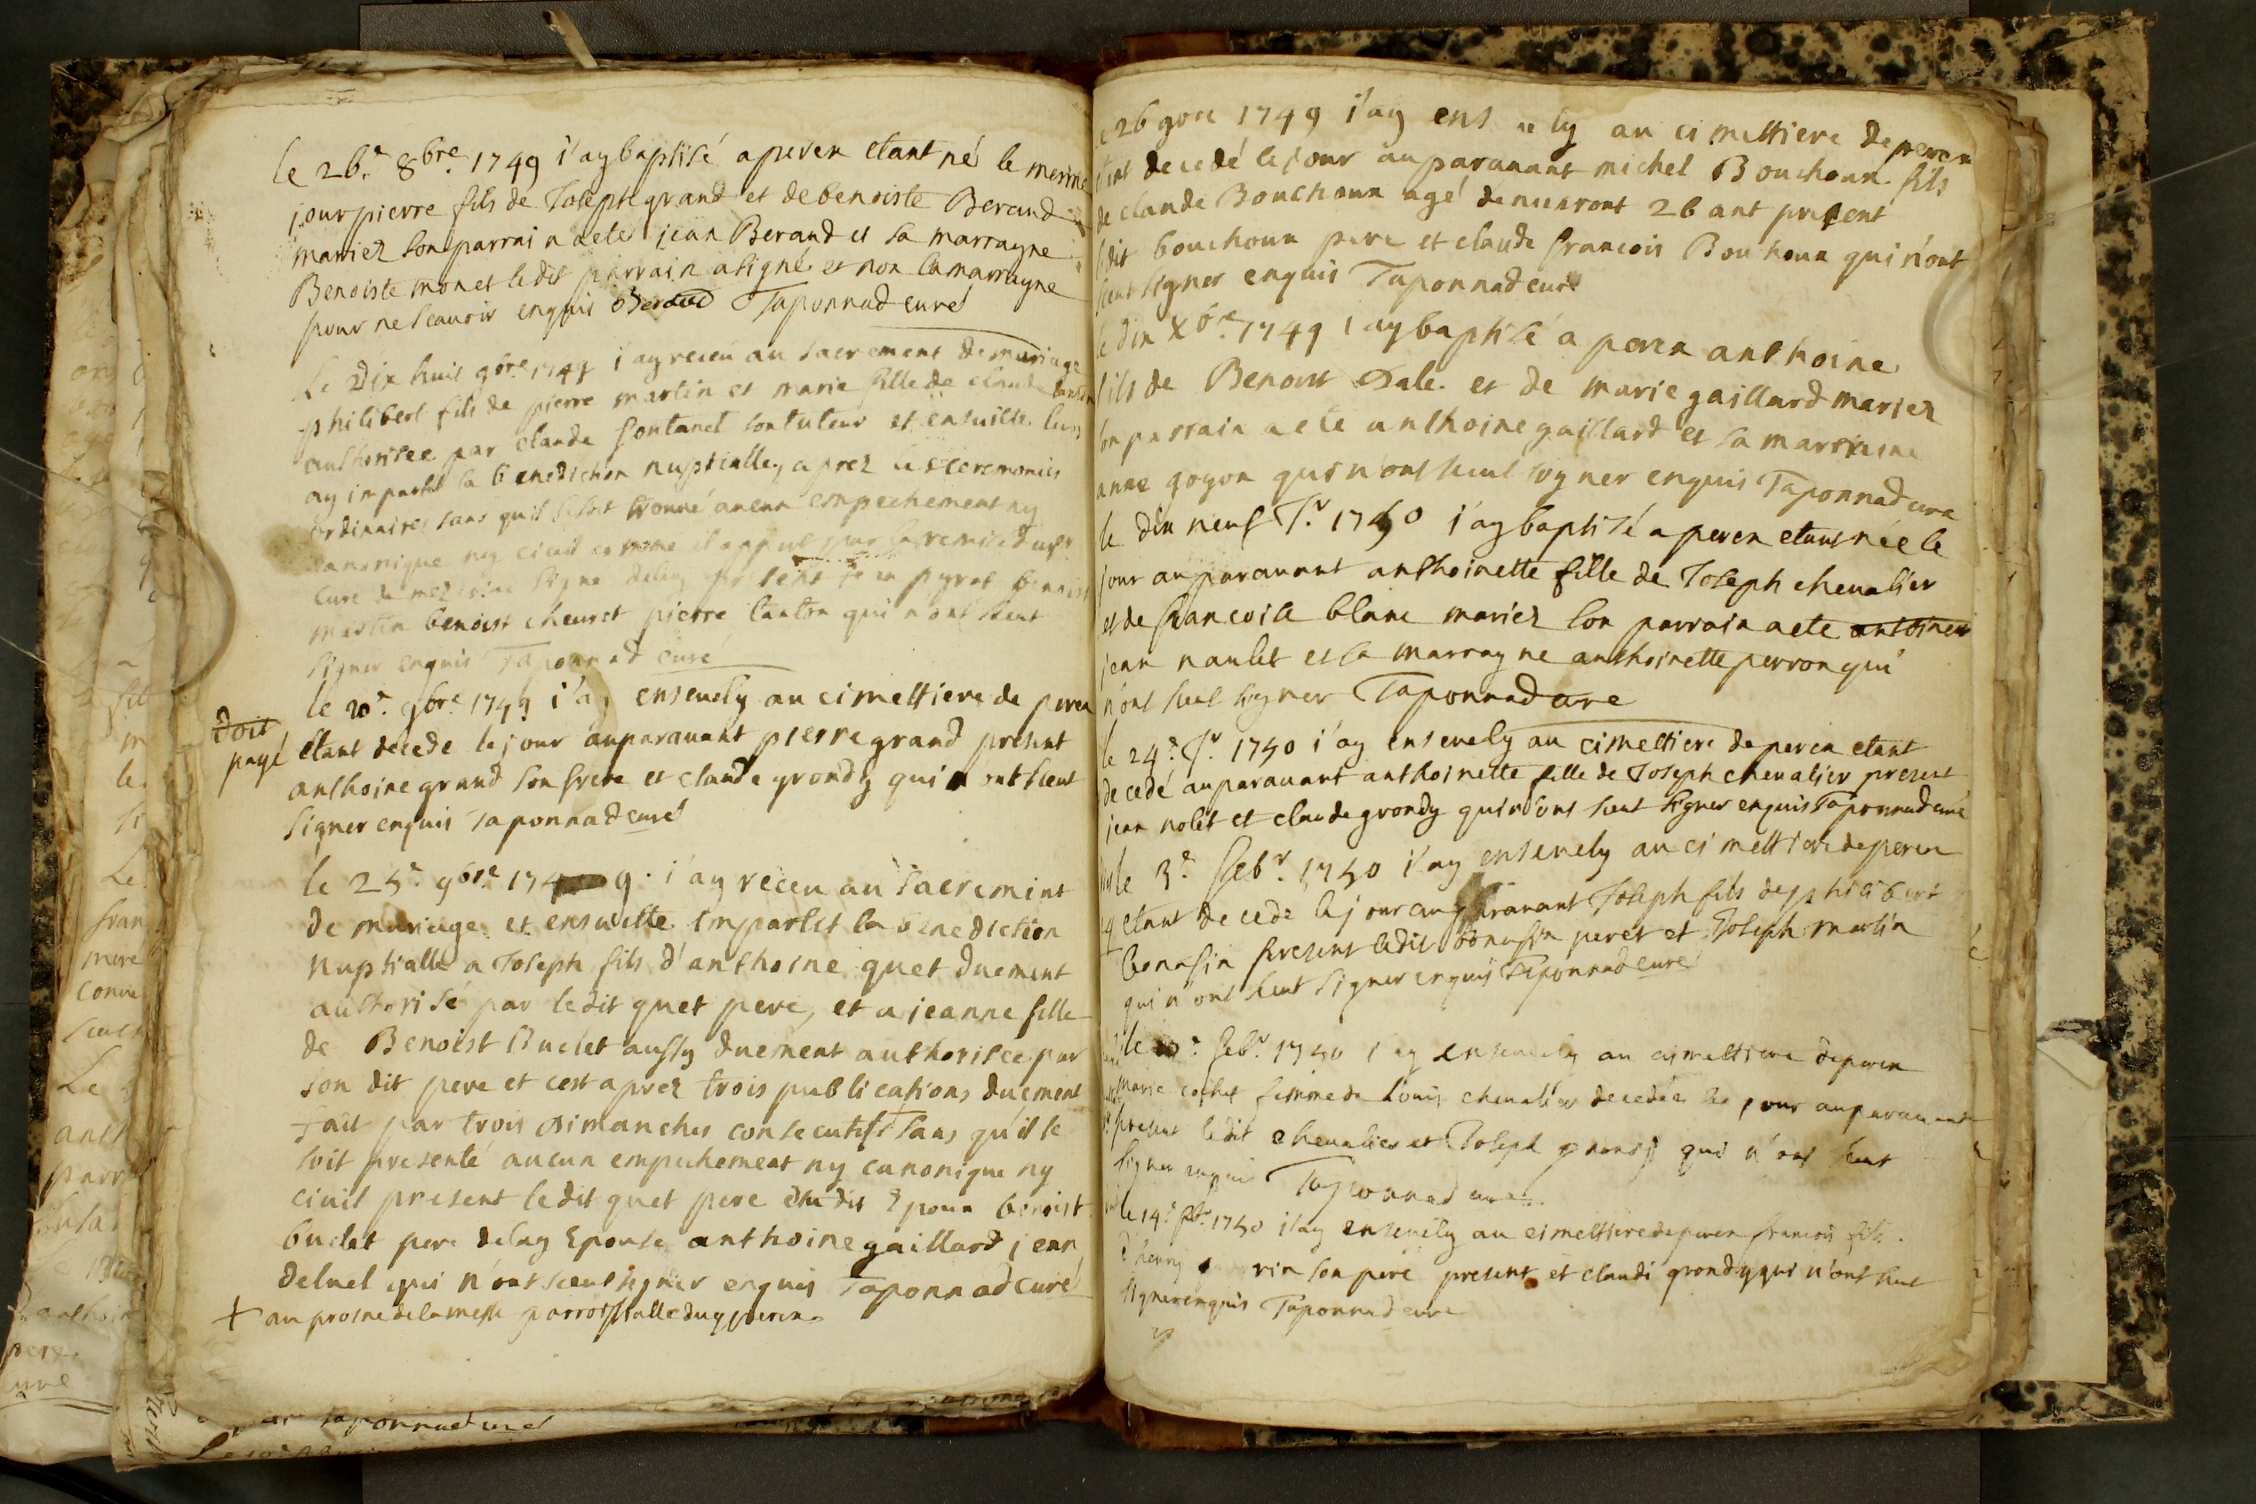 le 26.e 8bre. 1749 i'ay baptisé a peren etant né le mesme
jour pierre fils de Joseph grand et de benoiste Beraud
mariez son parrain a ete jean Beraud et sa marrayne
Benoiste monet ledit parrain a signé et non la marrayne
pour ne scauoir enquis Beraud Taponnad curé
Le Dix huit 9bre 1749 i'ay receu au sacrement de mariage
philibert fils de pierre martin et marie fille de claude
authorisee par claude fontanel son tuteur et ensuitte leurs
ay impartit la benediction nuptialle, aprez les ceremonies
ordinaires sans quil se soit trouué aucun empechement ny
canonique ny ciuil comme il appert par la remise du sr
Curé de signe deluy present jean pyrat benoist
martin benoist cheuret pierre tanton qui n'ont sceut
signer enquis Taponnad curé
le 20.e 9bre. 1749 i'ay enseuely au cimettiere de peren
doit
payé
etant decede le jour auparauant pierre grand present
anthoine grand son frere et claude grondy qui n'ont sceut
signer enquis Taponnad curé
le 25.e 9bre. 1749. i'ay receu au sacrement
de mariage et ensuitte impartit la benediction
nuptialle a Joseph fils d'anthoine quet duement
authorisé par ledit quet pere, et a jeanne fille
de Benoist Buclet aussy duement authorisee par
son dit pere et cest aprez trois publications duement
fait par trois dimanches consecutifs + sans qu'il se
soit presenté aucun empechement ny canonique ny
ciuil present ledit quet pere dudit Epoux benoist
buclet pere delay Epouse anthoine gaillard jean
deluel qui n'ont sceut signer enquis Taponnad curé
+ au prosne de la messe parroissialle duy peren
le 26 9bre 1749 i'ay enseuely au cimettiere de peren
etant decedé le jour auparauant michel Bouchoux fils
de claude Bouchoux agé d'enuiront 26 ant present
ledit bouchoux pere et claude francois Bouchoux qui n'ont
sceut signer enquis Taponnad curé
le dix Xbre 1749 i'ay baptisé a peren anthoine
fils de Benoist Dale et de marie gaillard mariez
son parrain a ete anthoine gaillard et sa marraine
anne goyon qui n'ont sceut signer enquis Taponnad curé
le dix neuf Jr. 1750 i'ay baptisé a peren etant née le
jour auparauant anthoinette fille de Joseph cheualier
et de francoise blanc mariez son parrain a ete antoine
jean naulet et sa marrayne anthoinette perron qui
n'ont sceut signer Taponnad cure
le 24.e Jr 1750 i'ay enseuely au cimettiere de peren etant
decedé auparauant anthoinette fille de Joseph cheualier present
jean nolet et claude grondy qui n'ont sceut signer enquis Taponnad curé
le 3.e febr. 1750 i'ay enseuely au cimettiere de peren
etant decede le jour auparauant Joseph fils de philibert
bonnasin present ledit bonassin pere et Joseph martin
qui n'ont sceut signer enquis Taponnad curé
le 10.e febr. 1750 i'ay enseuely au cimettiere de peren
marie cochet femme de Louis cheualier decedée le jour auparauant
present ledit cheualier et Joseph qui n'ont sceut
signer enquis Taponnad curé
le 14.e febr. 1750 i'ay enseuely au cimettiere de peren francois fils
d'henry son pere present et claude grondy qui n'ont sceut
signer enquis Taponnad cure